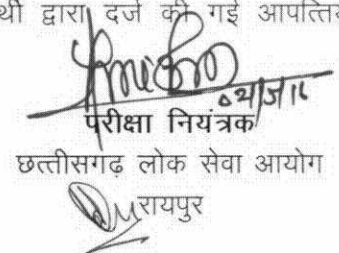 थी द्वारा दर्ज की गई आपत्तिय
02/5/16
परीक्षा नियंत्रक
छत्तीसगढ़ लोक सेवा आयोग
रायपुर